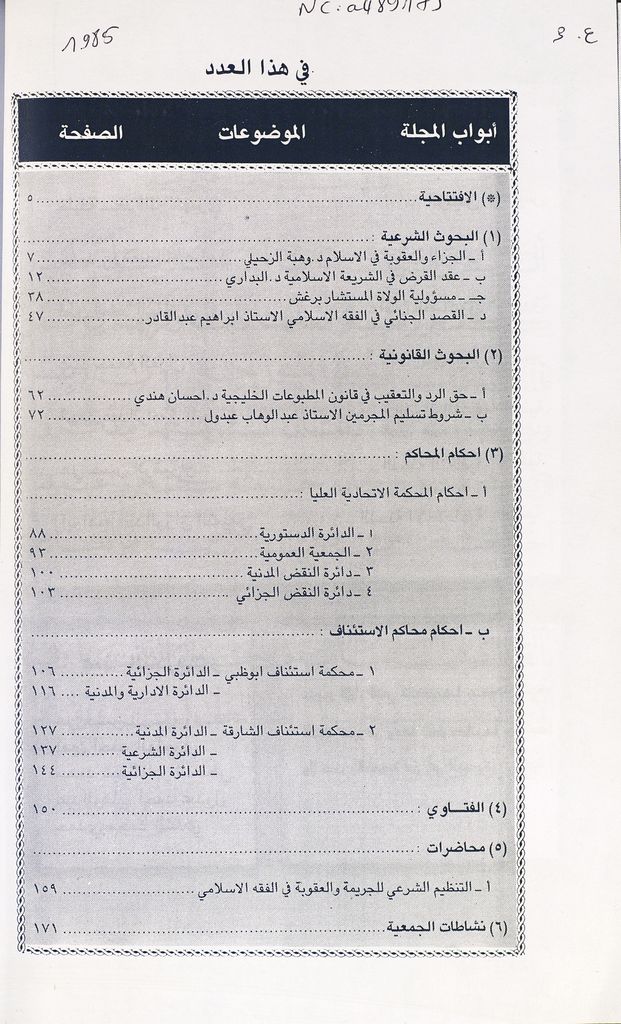 NC: a489173
1985
ع. 3
في هذا العدد
أبواب المجلة الموضوعات الصفحة
(*) الافتتاحية ٥
(١) البحوث الشرعية :
أ ـ الجزاء والعقوبة في الاسلام د. وهبة الزحيلي ٧
ب ـ عقد القرض في الشريعة الاسلامية د. البداري ١٢
جـ ـ مسؤولية الولاة المستشار برغش ٣٨
د ـ القصد الجنائي في الفقه الاسلامي الاستاذ ابراهيم عبدالقادر ٤٧
(٢) البحوث القانونية :
أ ـ حق الرد والتعقيب في قانون المطبوعات الخليجية د. احسان هندي ٦٢
ب ـ شروط تسليم المجرمين الاستاذ عبدالوهاب عبدول ٧٢
(٣) احكام المحاكم :
أ ـ احكام المحكمة الاتحادية العليا :
١ ـ الدائرة الدستورية ٨٨
٢ ـ الجمعية العمومية ٩٣
٣ ـ دائرة النقض المدنية ١٠٠
٤ ـ دائرة النقض الجزائي ١٠٣
ب ـ احكام محاكم الاستئناف :
١ ـ محكمة استئناف ابوظبي ـ الدائرة الجزائية ١٠٦
ـ الدائرة الادارية والمدنية ١١٦
٢ ـ محكمة استئناف الشارقة ـ الدائرة المدنية ١٢٧
ـ الدائرة الشرعية ١٣٧
ـ الدائرة الجزائية ١٤٤
(٤) الفتــاوي : ١٥٠
(٥) محاضرات :
أ ـ التنظيم الشرعي للجريمة والعقوبة في الفقه الاسلامي ١٥٩
(٦) نشاطات الجمعية ١٧١